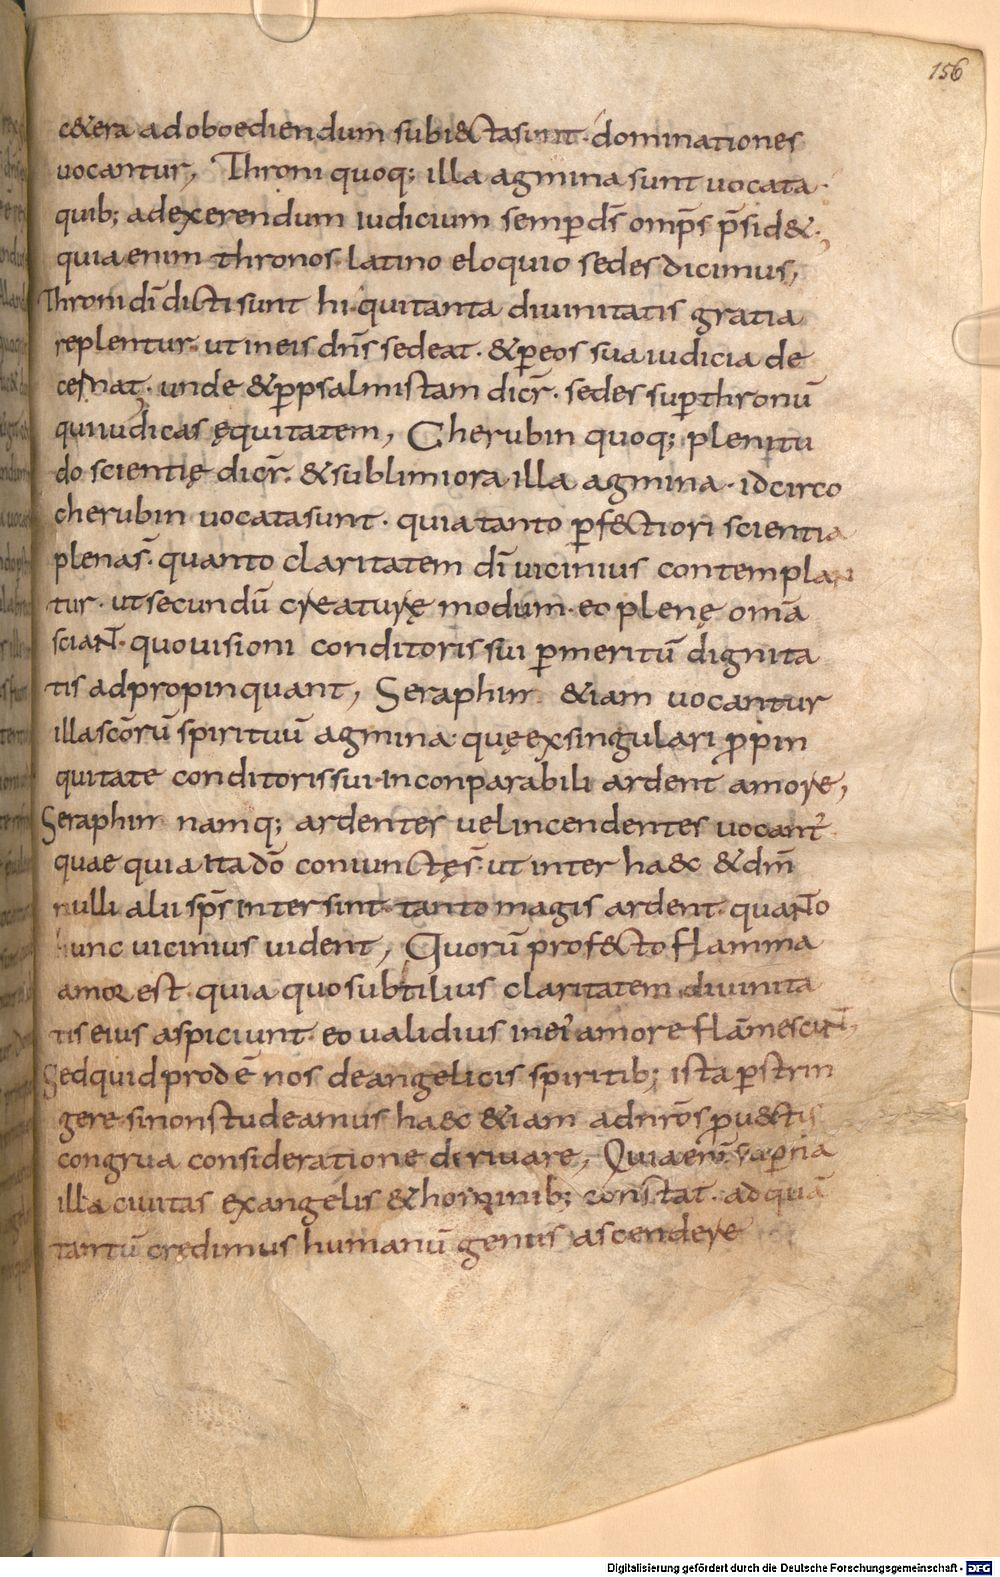 156
c&era ad oboediendum subi&ta sunt· dominationes
uocantur, Throni quoq; illa agmina sunt uocata·
quib; ad exerendum iudicium semp̱ ds̄ omp̄s p̄sid&·,
quia enim thronos· latino eloquio sedes dicimus,
Throni dī dicti sunt hi· qui tanta diuinitatis gratia
replentur· ut in eis dn̄s sedeat· & p̱ eos sua iudicia de
cernat· unde & p̱ psalmistam dicr̄· sedes sup̱ thronū
qui iudicas ęquitatem, Cherubin quoq; plenitu
do scientię dicr̄· & sublimiora illa agmina· idcirco
cherubin uocata sunt· quia tanto p̱f&iori scientia
plena s̄· quanto claritatem dī uicinius contemplan
tur· ut secundū creaturę modum· eo plenę omā
sciaNT· quo uisioni conditoris sui p̱ meritū dignita
tis adpropinquant, Seraphin &iam uocantur
illa sc̄orū spirituū agmina· quę ex singulari p̱pin
quitate conditoris sui· inconparabili ardent amore,
Seraphin namq; ardentes uel incendentes uocant̄
quae quia ita dō coniunctę s̄· ut inter haec & dm̄
nulli alii sp̄s intersint· tanto magis ardent· quaNTo
hunc uicinius uident, Quorū profecto flamma
amor est· quia quo subtilius claritatem diuinita
tis eius aspiciunt· eo ualidius in ei' amore flāmesciuNT,
Sed quid prodē nos de angelicis spiritib; ista p̱strin
gere· si non studeamus haec &iam ad nr̄os p̱uectus
congrua consideratione deriuare, Quia enī sup̱na
illa ciuitas ex angelis & hominib; constat· ad quā
tantū credimus humanū genus ascendere
Digitalisierung gefördert durch die Deutsche Forschungsgemeinschaft - DFG